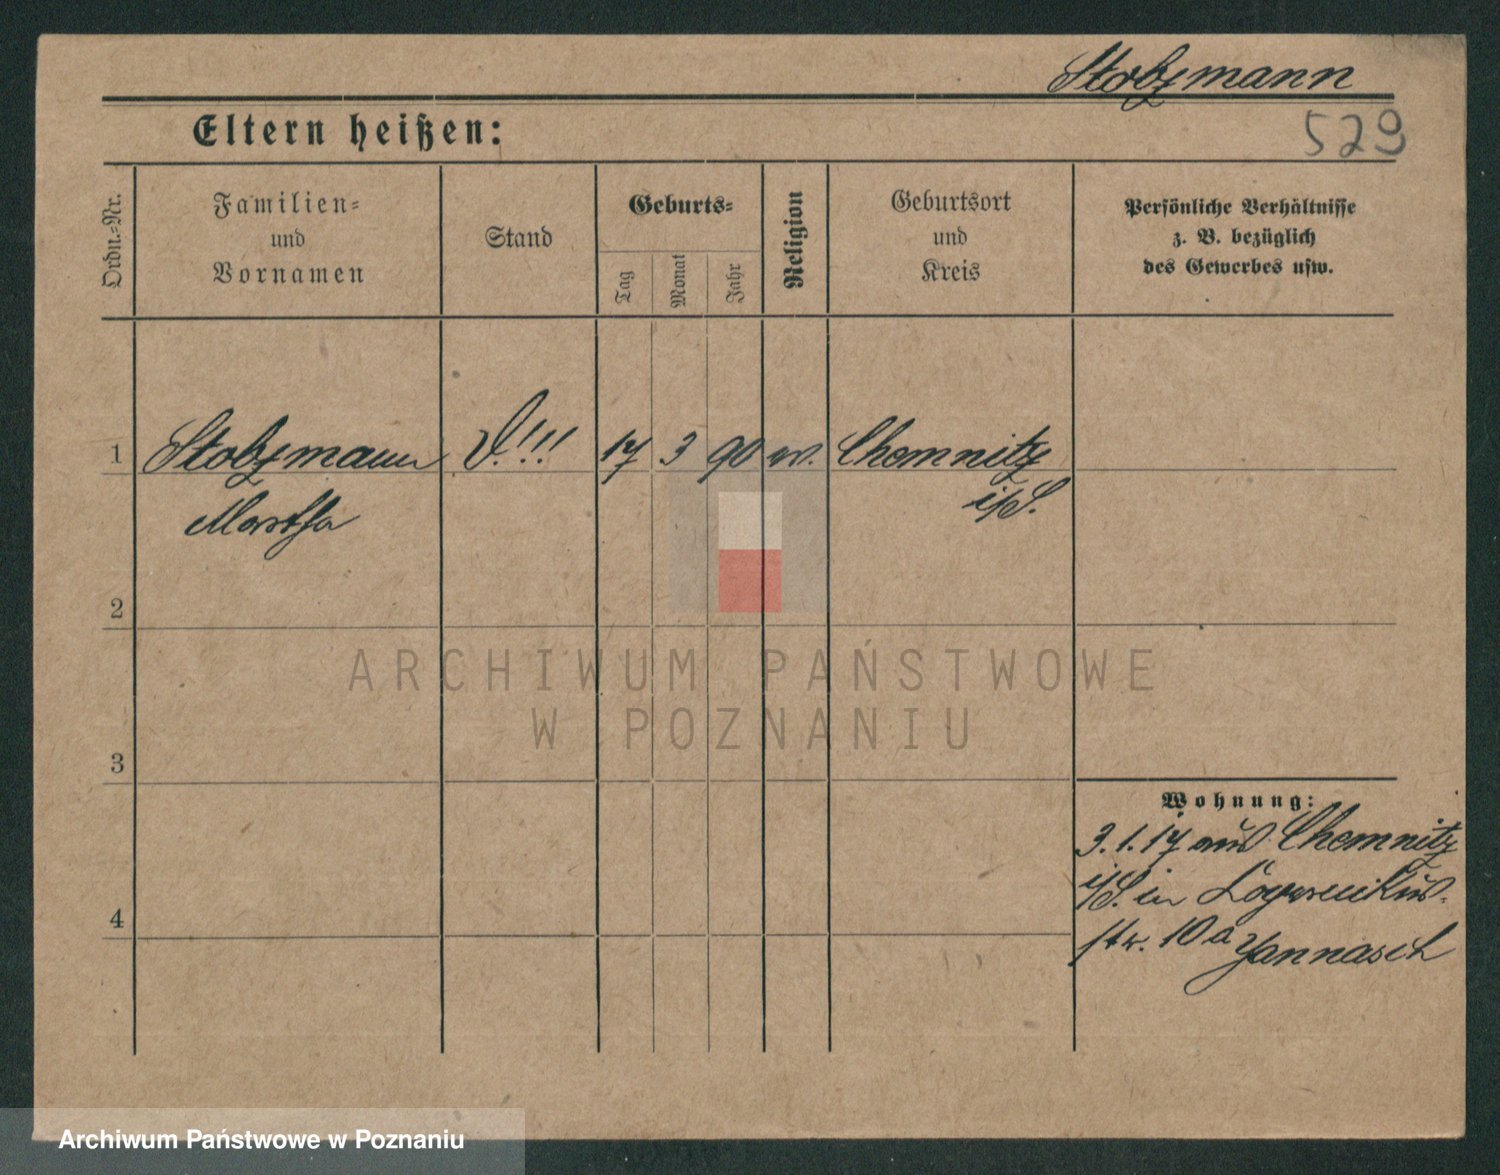 Stolzmann
529
Eltern heißen:
Ordn.-Nr.
Familien-
und
Vornamen
Stand
Geburts-
Tag
Monat
Jahr
Religion
Geburtsort
und
Kreis
Persönliche Verhältnisse
z. B. bezüglich
des Gewerbes usw.
1 Stolzmann !!! 17 3 90 Chemnitz
Martha i/S.
2
3
4
Wohnung:
3.1.17 aus Chemnitz
i/S. in
str. 10a Jannasch
ARCHIWUM PAŃSTWOWE
W POZNANIU
Archiwum Państwowe w Poznaniu